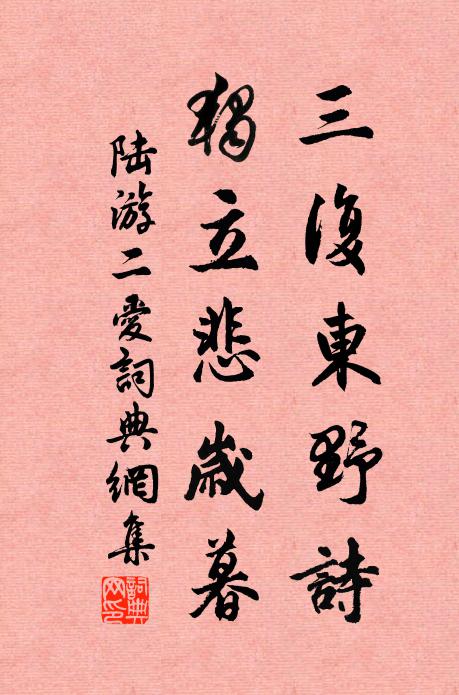 三復東野詩
獨立悲歲暮
陸游二愛詞典網集
詞典网印